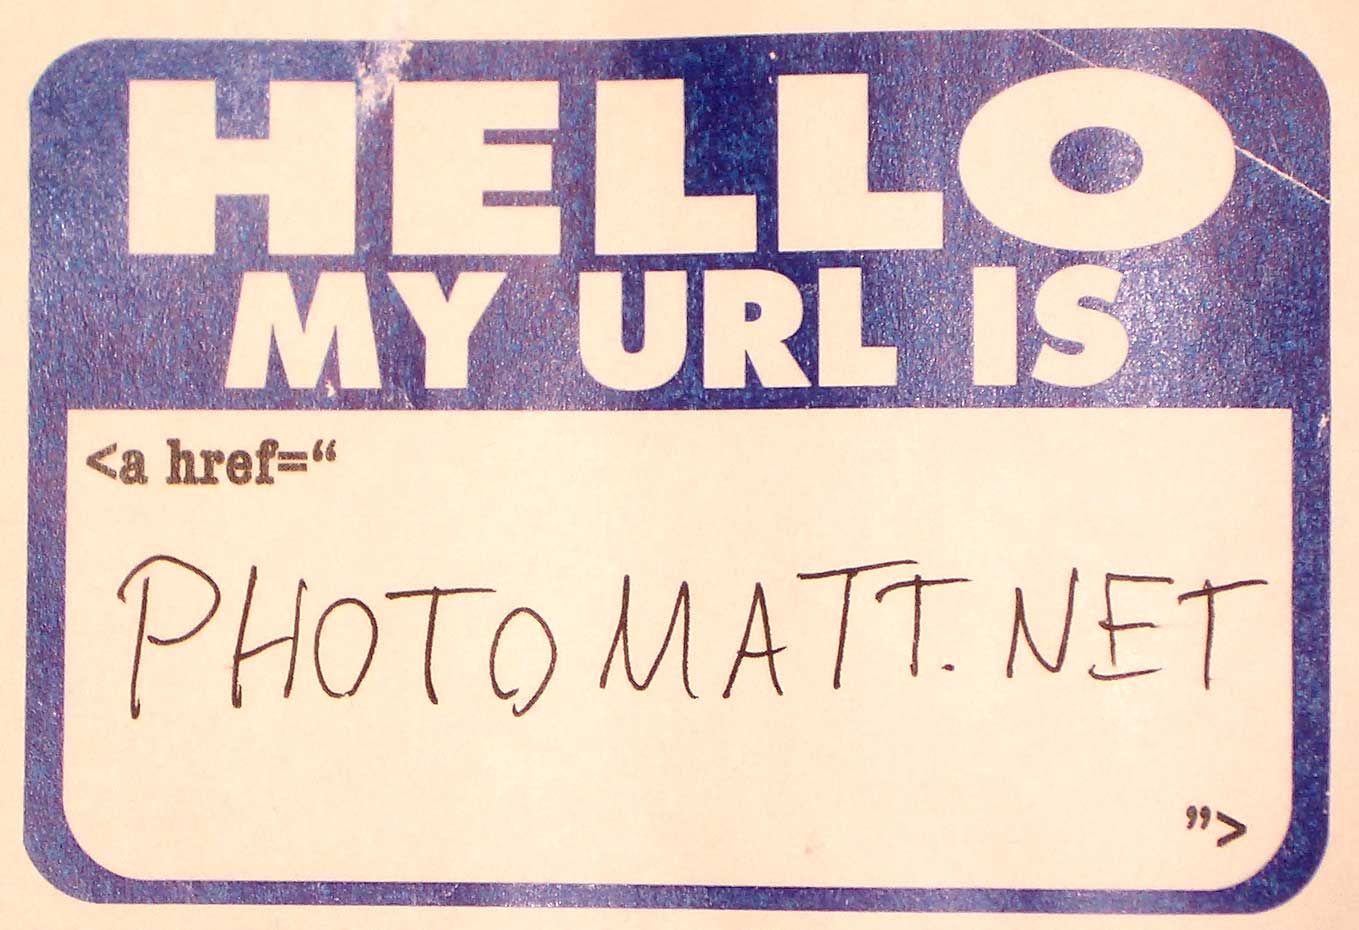 HELLO
MY URL IS
<a href=“
PHOTOMATT.NET
”>